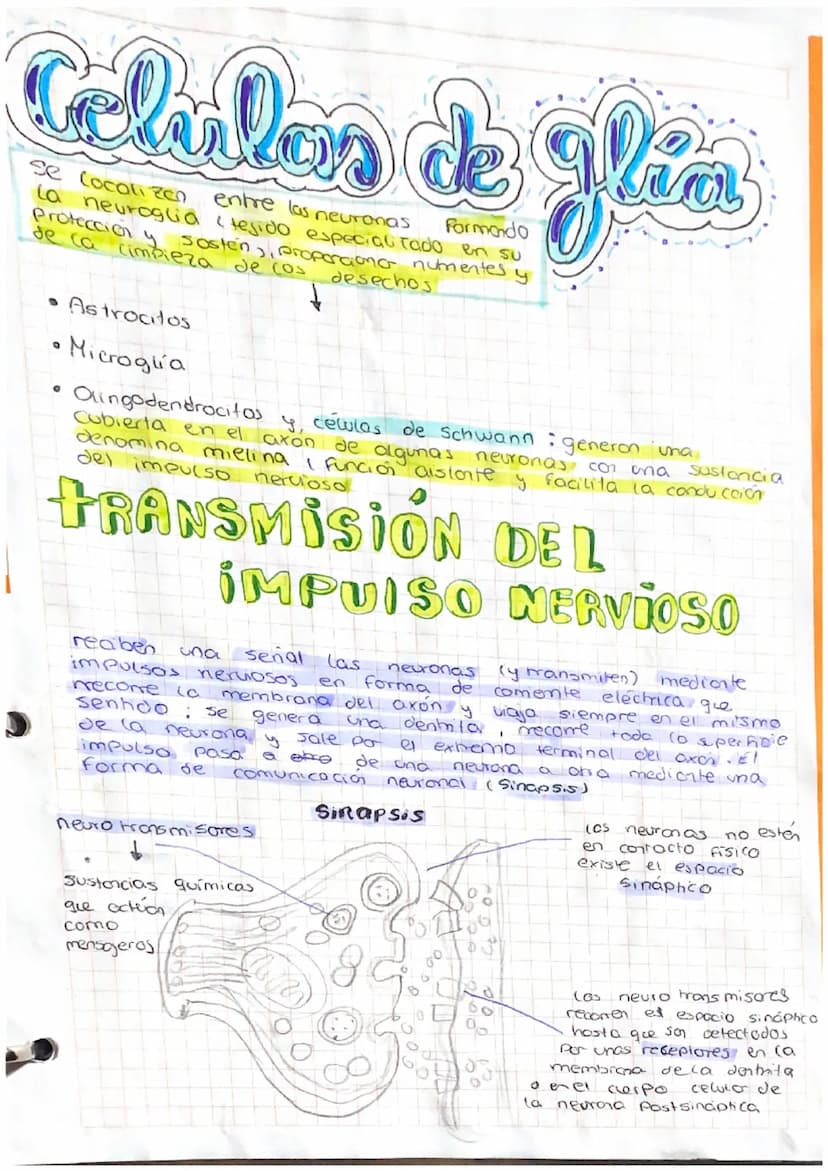 Celulas de glía
se localizen entre las neuronas formando
la neuroglia (tejido especializado en su
protección y sostén), proporcionar nurmentes y
de la limpieza de los desechos
• Astrocitos
• Microglía
• Olingodendrocitos y, células de Schwann : generan una
cubierta en el axón de algunas neuronas con una sustancia
denomina mielina ( función aislante y facilita la conducción
del impulso nervioso
tRANSMiSiÓN DEL
iMPUlSO NERViOSO
reciben una señal las neuronas (y transmiten) mediante
impulsos nerviosos en forma de corriente eléctrica, que
recorre la membrana del axón y viaja siempre en el mismo
sentido : se genera una dentrita, recorre toda la superficie
de la neurona y sale por el extremo terminal del axon. El
impulso pasa de una neurona a otra mediante una
forma de comunicación neuronal (Sinapsis)
Sinapsis
neurotransmisores
sustancias químicas
que actúan
como
mensajeros
las neuronas no estén
en contacto físico
existe el espacio
sináptico
Los neurotransmisores
recorren el espacio sináptico
hasta que son detectados
por unos receptores en la
membrana de la dentrita
o en el cuerpo celular de
la neurona postsináptica